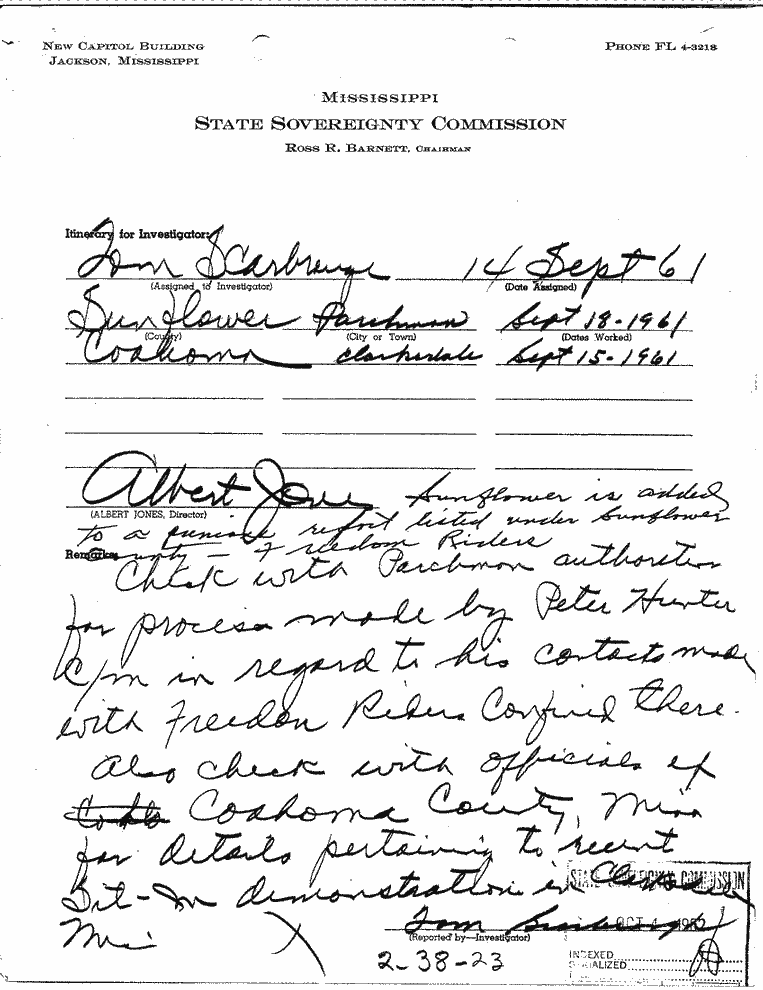 NEW CAPITOL BUILDING
JACKSON, MISSISSIPPI
PHONE FL 4-3218
MISSISSIPPI
STATE SOVEREIGNTY COMMISSION
ROSS R. BARNETT, CHAIRMAN
Itinerary for Investigator:
Tom Scarbrough 14 Sept 61
(Assigned to Investigator) (Date Assigned)
Sunflower Parchman Sept 18-1961
(County) (City or Town) (Dates Worked)
Coahoma Clarksdale Sept 15-1961
Albert Jones Sunflower is added
(ALBERT JONES, Director)
to a report listed under Sunflower
Remarks County - Freedom Riders
Check with Parchman
for process made by Peter Hunter
C/m in regard to his contacts made
with Freedon Riders Confined there.
Also check with officials of
Coahoma County, Miss
for details pertaining to recent
Sit-In demonstration in
Miss
Tom Scarbrough
(Reported by—Investigator)
2-38-23
STATE SOVEREIGNTY COMMISSION
OCT 4
INDEXED
SERIALIZED